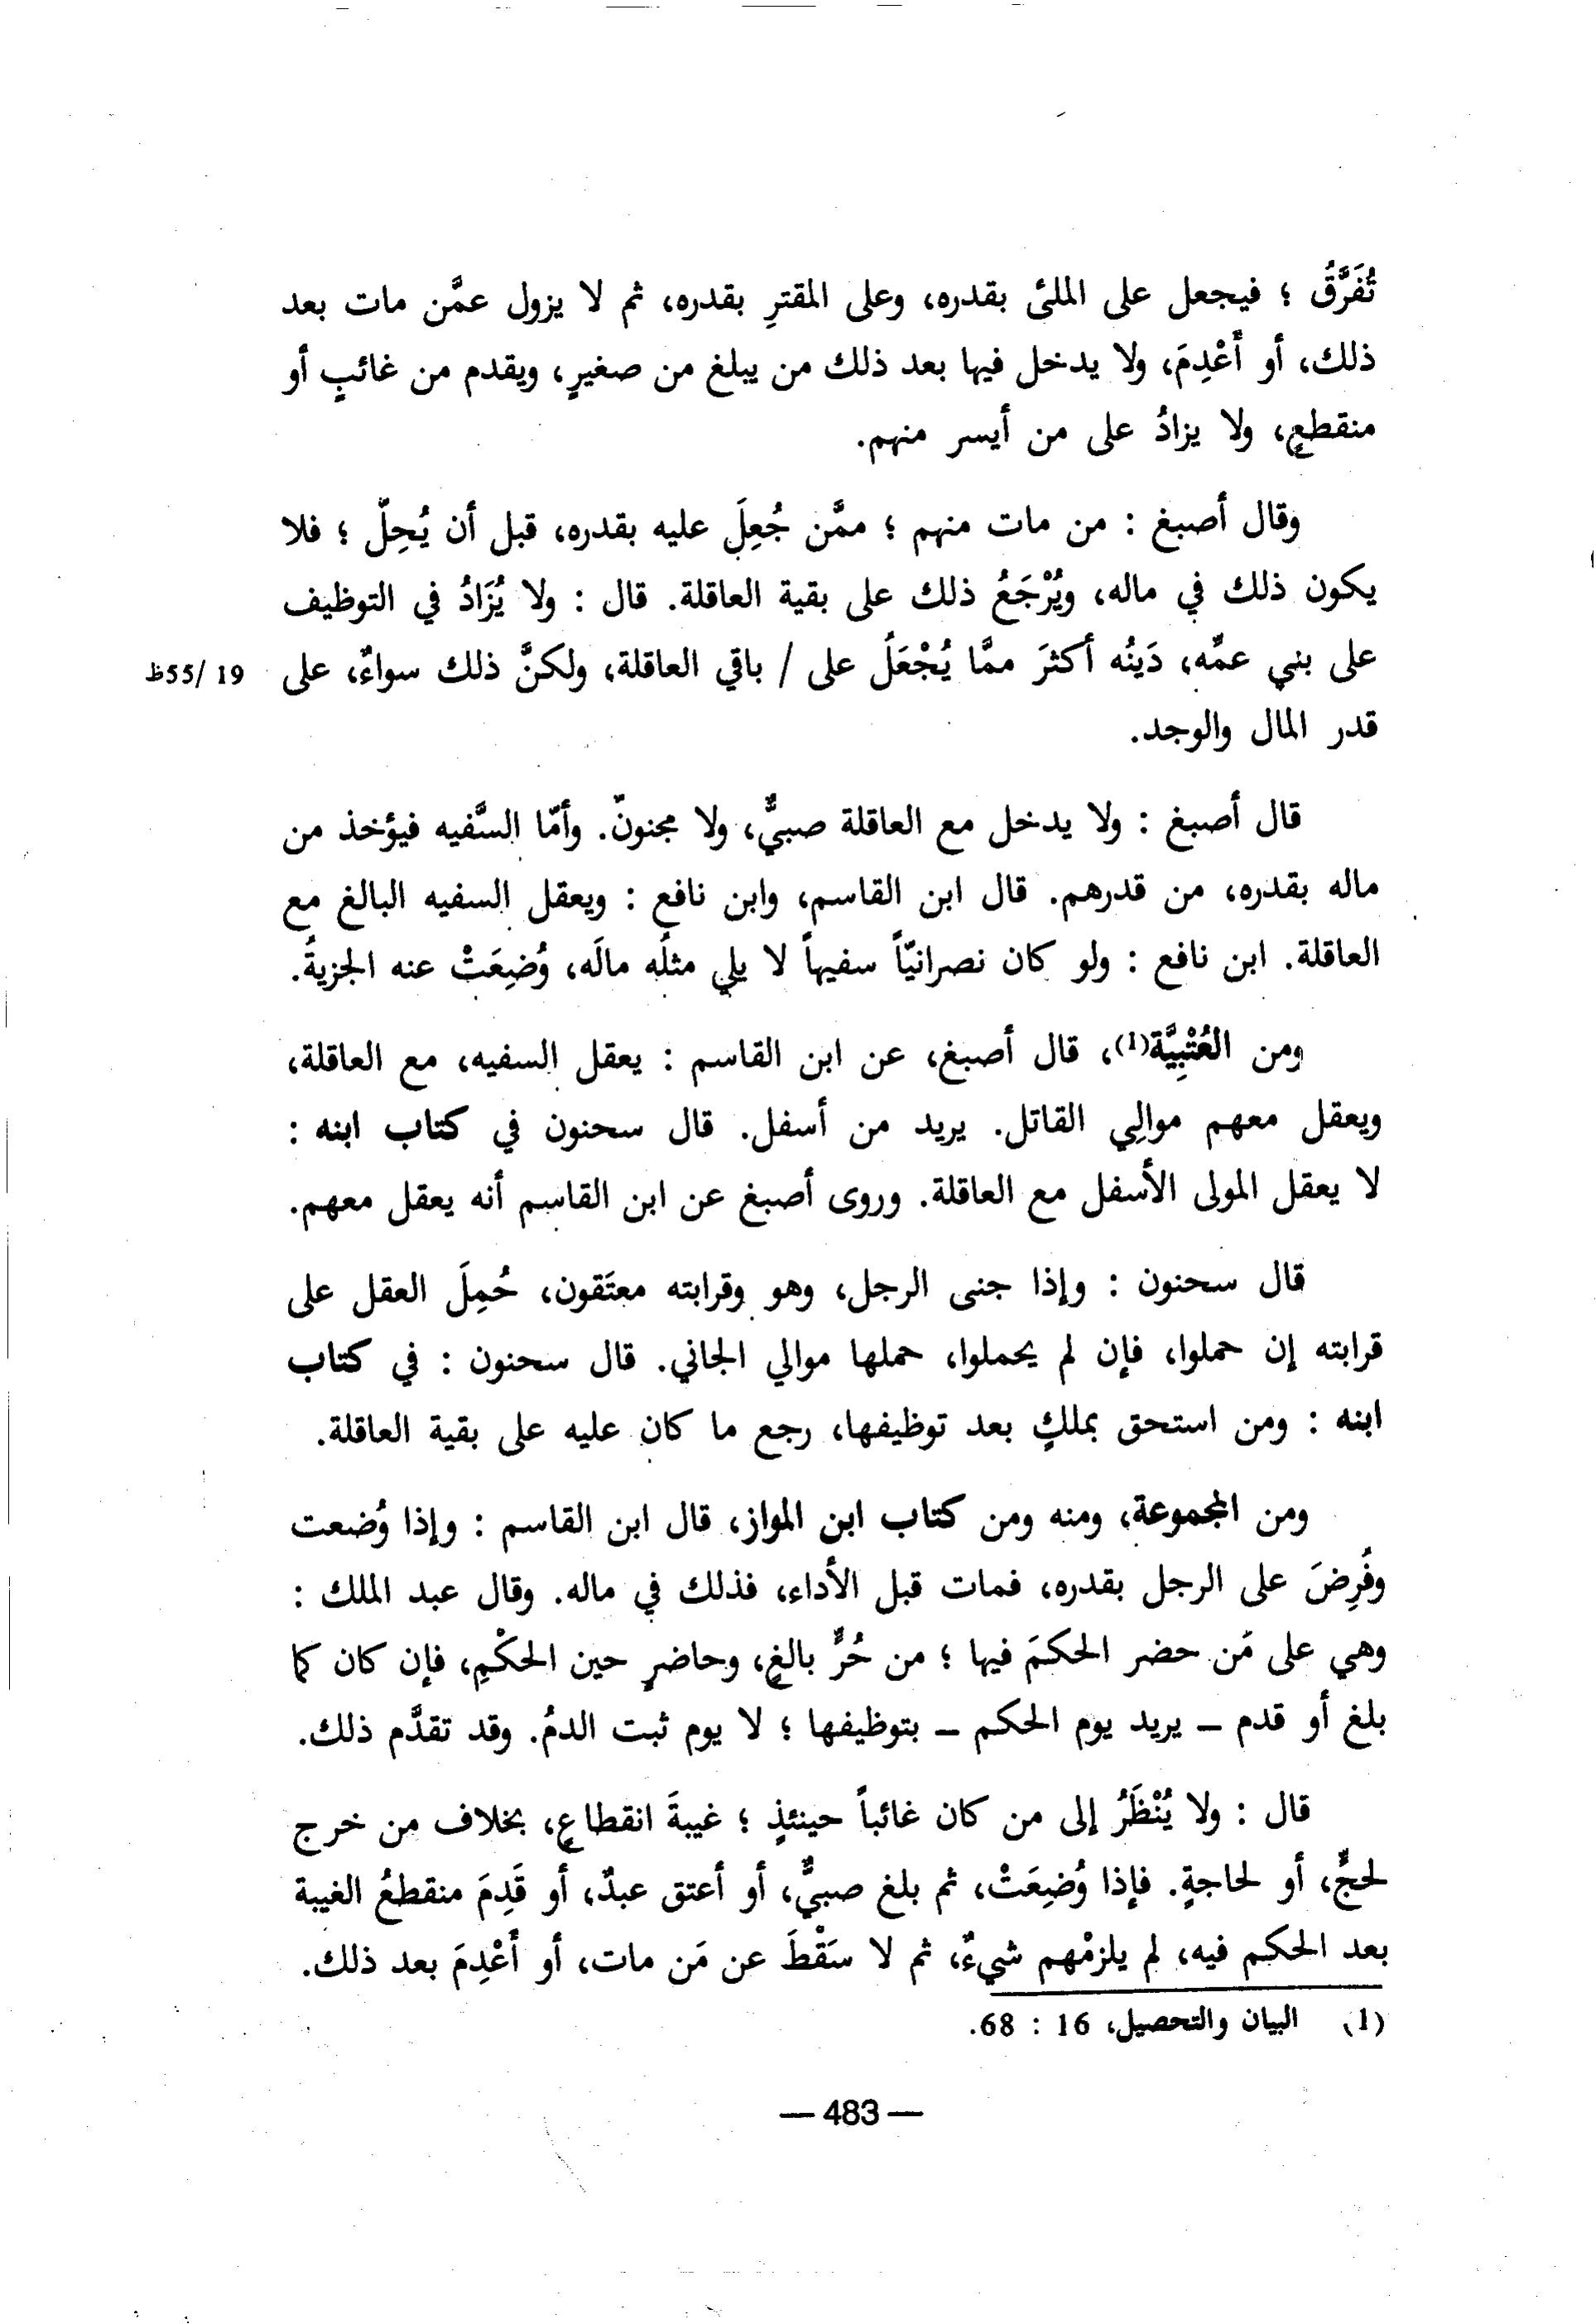 تُفَرَّقُ ؛ فيجعل على الملئ بقدره، وعلى المقترِ بقدره، ثم لا يزول عمَّن مات بعد
ذلك، أو أَعْدِمَ، ولا يدخل فيها بعد ذلك من يبلغ من صغيرٍ، ويقدم من غائبٍ أو
منقطعٍ، ولا يزادُ على من أيسر منهم.
وقال أصبغ : من مات منهم ؛ ممَّن جُعِلَ عليه بقدره، قبل أن يُحِلّ ؛ فلا
يكون ذلك في ماله، ويُرْجَعُ ذلك على بقية العاقلة. قال : ولا يُزَادُ في التوظيف
على بني عمِّه، دَينُه أكثرَ ممَّا يُجْعَلُ على / باقي العاقلة، ولكنَّ ذلك سواءٌ، على
19 /55ظ
قدر المال والوجد.
قال أصبغ : ولا يدخل مع العاقلة صبيٌّ، ولا مجنونٌ. وأمّا السَّفيه فيؤخذ من
ماله بقدره، من قدرهم. قال ابن القاسم، وابن نافع : ويعقل السفيه البالغ مع
العاقلة. ابن نافع : ولو كان نصرانيّاً سفيهاً لا يلي مثلُه مالَه، وُضِعَتْ عنه الجزيةُ.
ومن العُتْبِيَّة(1)، قال أصبغ، عن ابن القاسم : يعقل السفيه، مع العاقلة،
ويعقل معهم موالِي القاتل. يريد من أسفل. قال سحنون في كتاب ابنه :
لا يعقل المولى الأسفل مع العاقلة. وروى أصبغ عن ابن القاسم أنه يعقل معهم.
قال سحنون : وإذا جنى الرجل، وهو وقرابته معتَقون، حُمِلَ العقل على
قرابته إن حملوا، فإن لم يحملوا، حملها موالي الجاني. قال سحنون : في كتاب
ابنه : ومن استحق بملكٍ بعد توظيفها، رجع ما كان عليه على بقية العاقلة.
ومن المجموعة، ومنه ومن كتاب ابن المواز، قال ابن القاسم : وإذا وُضعت
وفُرِضَ على الرجل بقدره، فمات قبل الأداء، فذلك في ماله. وقال عبد الملك :
وهي على مَن حضر الحكمَ فيها ؛ من حُرٍّ بالغٍ، وحاضرٍ حين الحكْمِ، فإن كان كما
بلغ أو قدم – يريد يوم الحكم – بتوظيفها ؛ لا يوم ثبت الدمُ. وقد تقدَّم ذلك.
قال : ولا يُنْظَرُ إلى من كان غائباً حينئذٍ ؛ غيبةَ انقطاعٍ، بخلاف من خرج
لحجٍّ، أو لحاجةٍ. فإذا وُضِعَتْ، ثم بلغ صبيٌّ، أو أعتق عبدٌ، أو قَدِمَ منقطعُ الغيبة
بعد الحكم فيه، لم يلزمْهم شيءٌ، ثم لا سَقْطَ عن مَن مات، أو أَعْدِمَ بعد ذلك.
(1) البيان والتحصيل، 16 : 68.
— 483 —